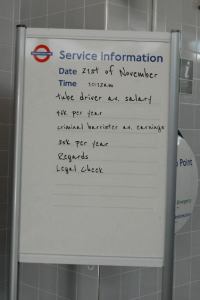 Service Information
Date 21st of November
Time 10:12am
tube driver av. salary
per year
criminal barrister av. earnings
30K per year
Regards
Legal Check
Point